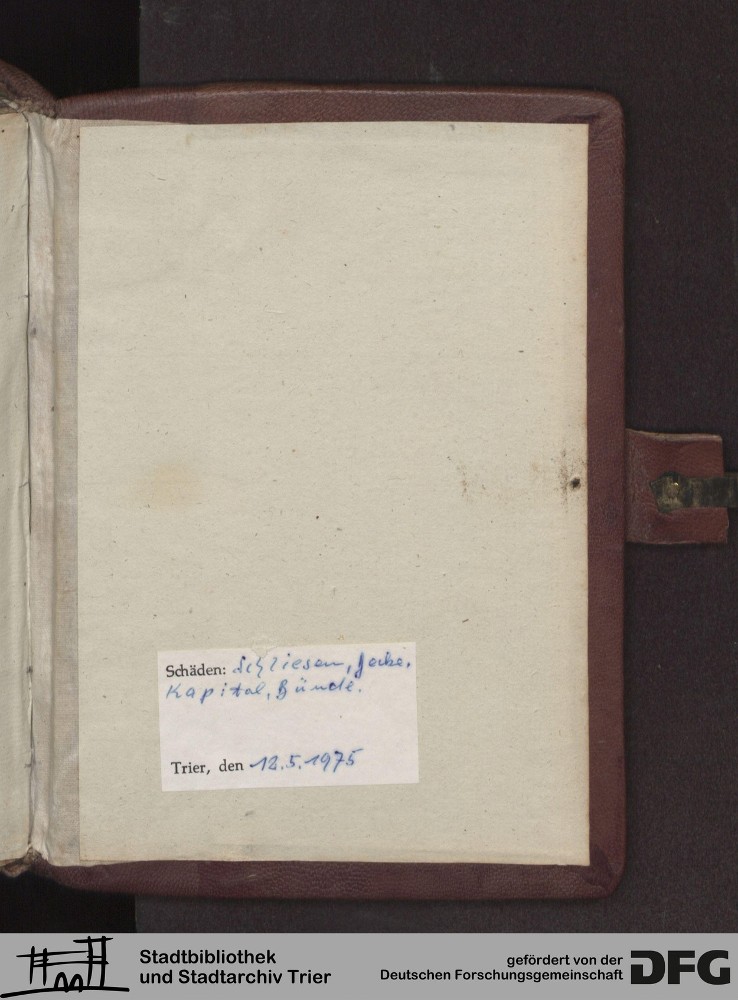 Schäden: Schliesen,
Kapital, Bünde.
Trier, den 12.5.1975
Stadtbibliothek
und Stadtarchiv Trier
gefördert von der
Deutschen Forschungsgemeinschaft
DFG